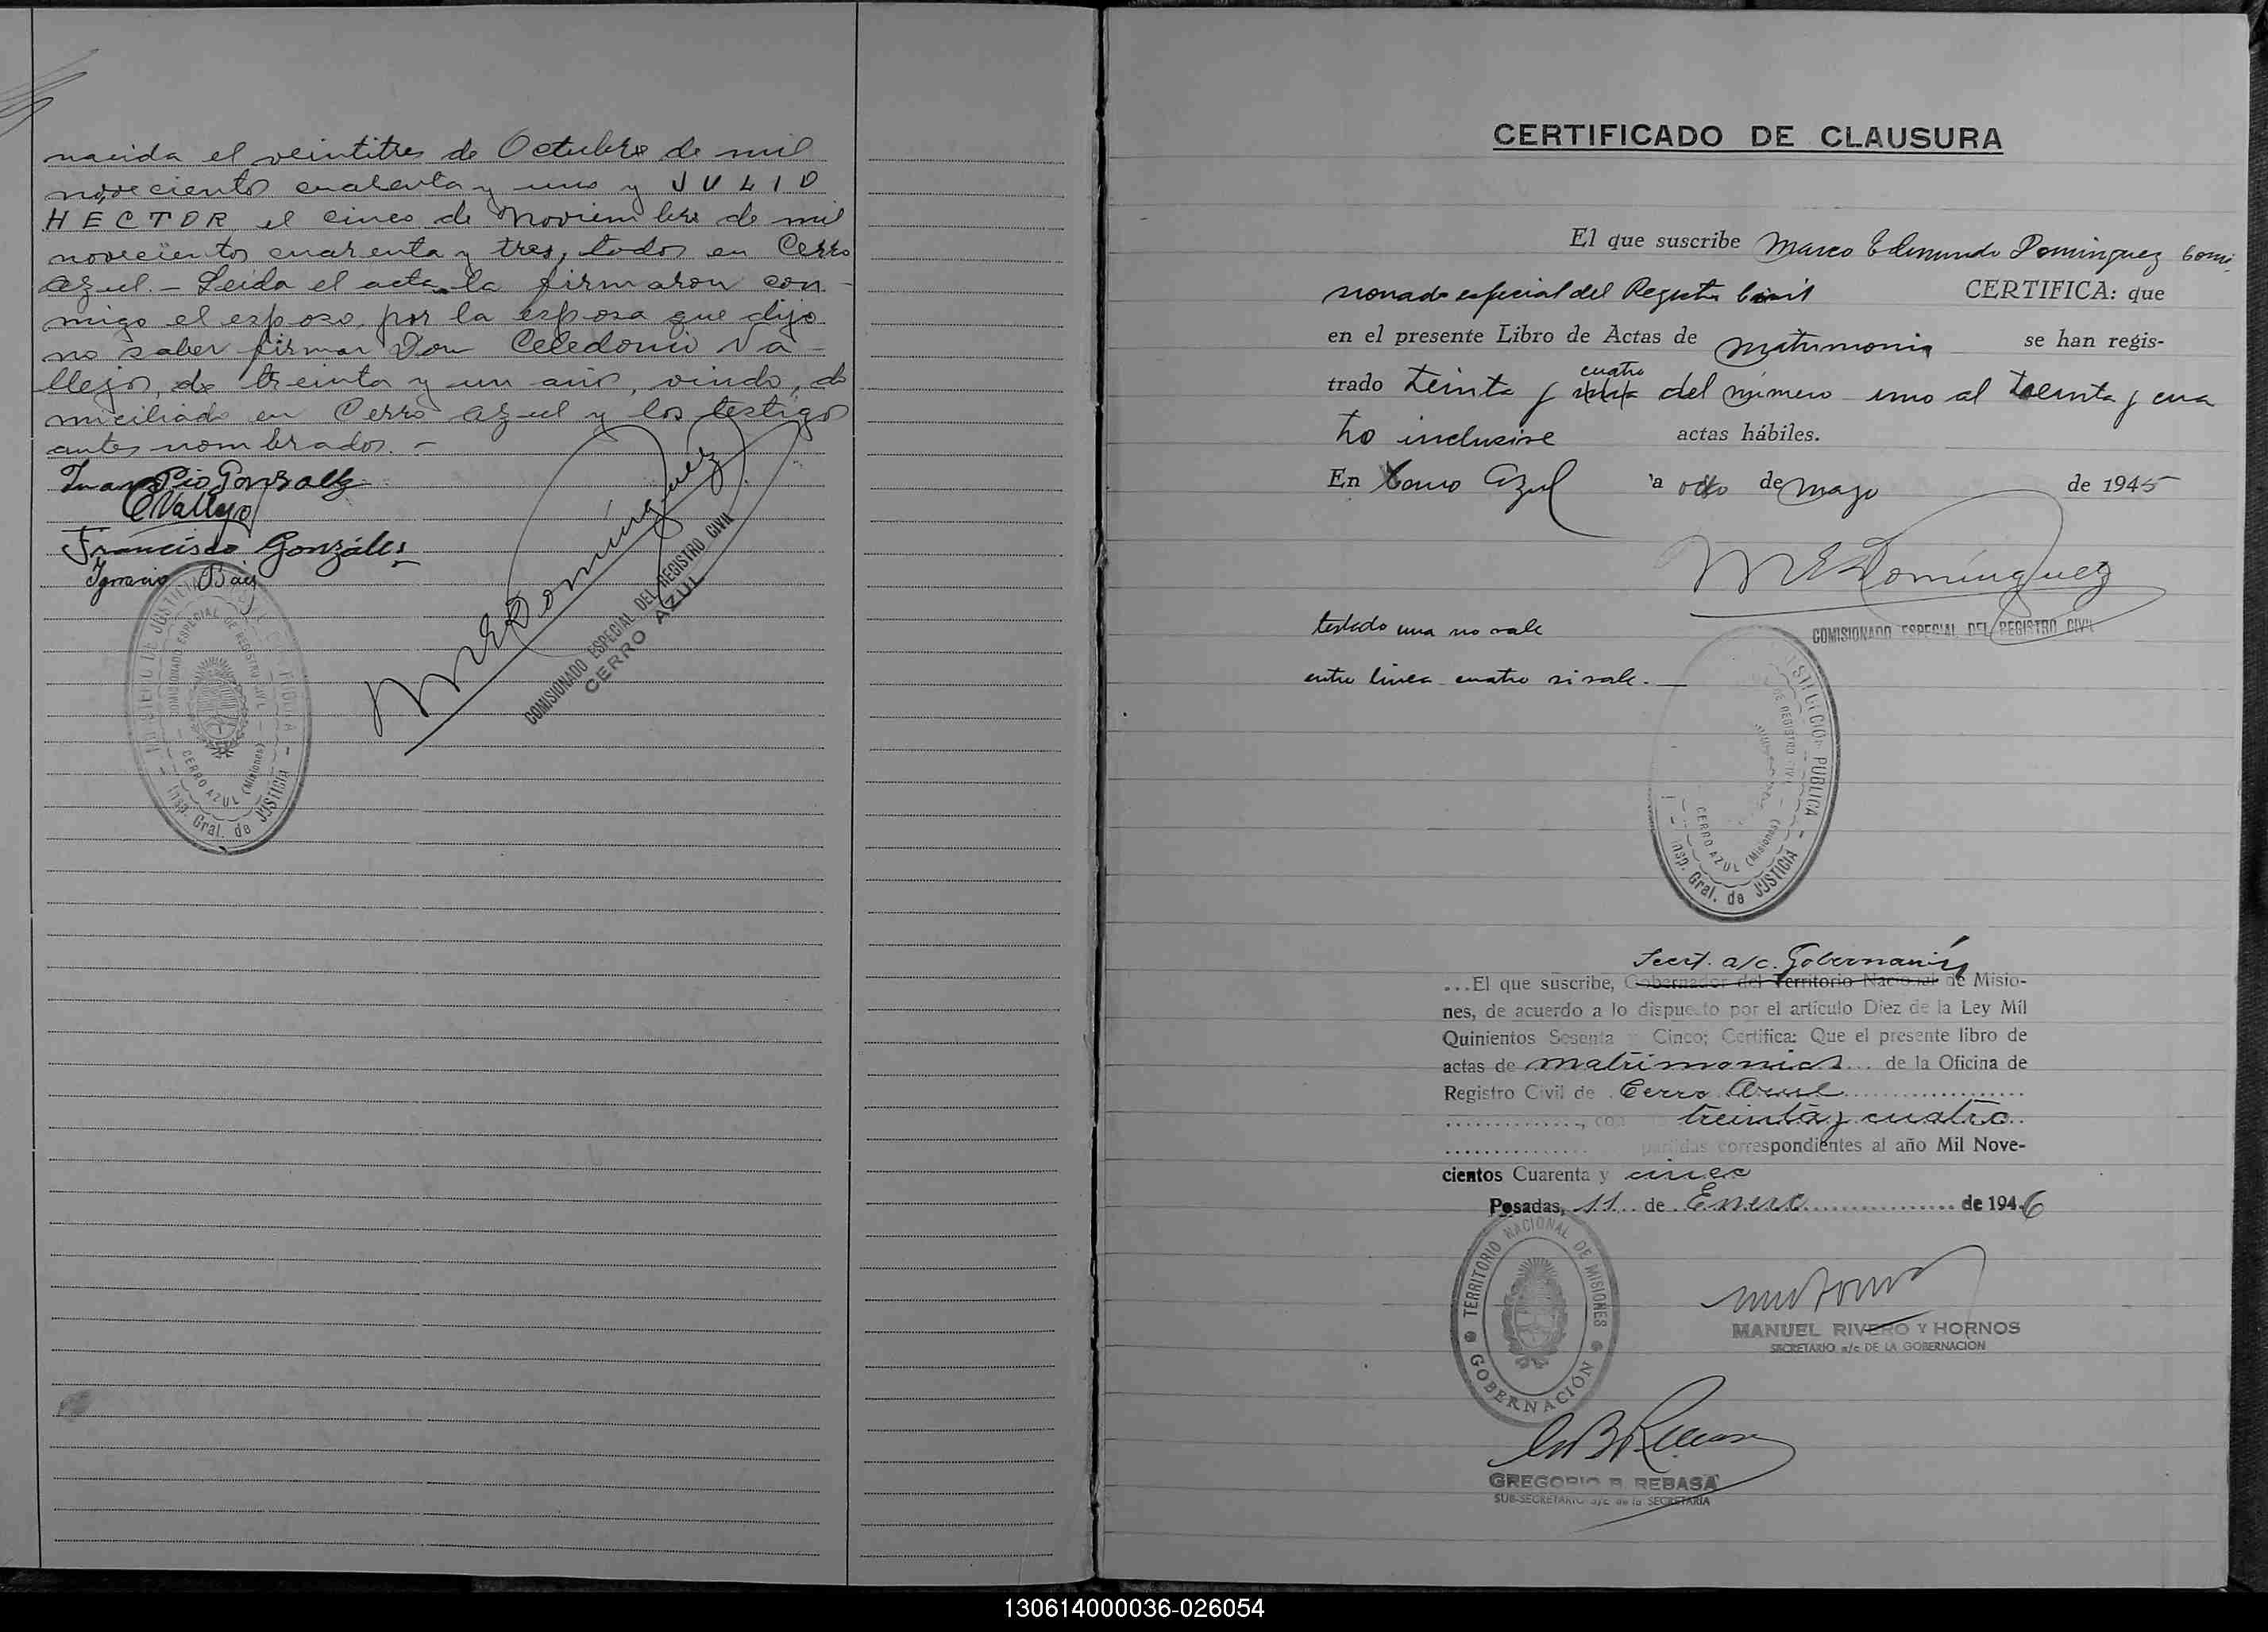 nacida el veintitres de Octubre de mil
novecientos cuarenta y uno y JULIO
HECTOR el cinco de Noviembre de mil
novecientos cuarenta y tres, todos en Cerro
Azul.- Leida el acta la firmaron con-
migo el esposo, por la esposa que dijo
no saber firmar Don Celedonio Va-
llejos, de treinta y un años, viudo, do
miciliado en Cerro Azul y los testigos
antes nombrados.-
Juan Pio Gonzalez
C Vallejo
Francisco Gonzáles
Ignacio Báez
M E Domínguez
COMISIONADO ESPECIAL DEL REGISTRO CIVIL
CERRO AZUL
COMISIONADO ESPECIAL DE REGISTRO CIVIL
CERRO AZUL (Misiones)
Insp. Gral. de JUSTICIA
CERTIFICADO DE CLAUSURA
El que suscribe Marco Edmundo Dominguez Comi-
sionado especial del Registro Civil CERTIFICA: que
en el presente Libro de Actas de matrimonio se han regis-
cuatro
trado treinta y una del número uno al treinta y cua
tro inclusive actas hábiles.
En Cerro Azul a ocho de mayo de 1945
M E Domínguez
COMISIONADO ESPECIAL DEL REGISTRO CIVIL
testado una no vale
entre linea cuatro si vale.-
PUBLICA
DE REGISTRO CIVIL
CERRO AZUL (Misiones)
Insp. Gral. de JUSTICIA
Secret. a/c. Gobernación
...El que suscribe, Gobernador del Territorio Nacional de Misio-
nes, de acuerdo a lo dispuesto por el artículo Diez de la Ley Mil
Quinientos Sesenta y Cinco; Certifica: Que el presente libro de
actas de matrimonios... de la Oficina de
Registro Civil de Cerro Azul
..............., con treinta y cuatro..
............... partidas correspondientes al año Mil Nove-
cientos Cuarenta y cinco
Posadas, 11 de Enero de 1946
TERRITORIO NACIONAL DE MISIONES
GOBERNACIÓN
MANUEL RIVERO Y HORNOS
SECRETARIO a/c DE LA GOBERNACION
GREGORIO B. REBASA
SUB-SECRETARIO a/c de la SECRETARIA
130614000036-026054